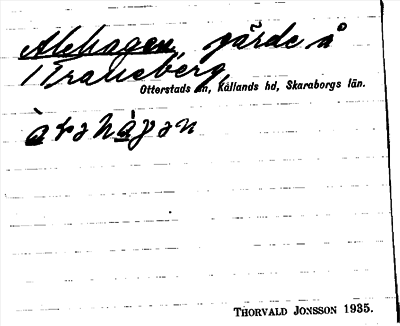 Alehagen, gärde å
Traneberg,
Otterstads sn, Kållands hd, Skaraborgs län.
THORVALD JONSSON 1935.